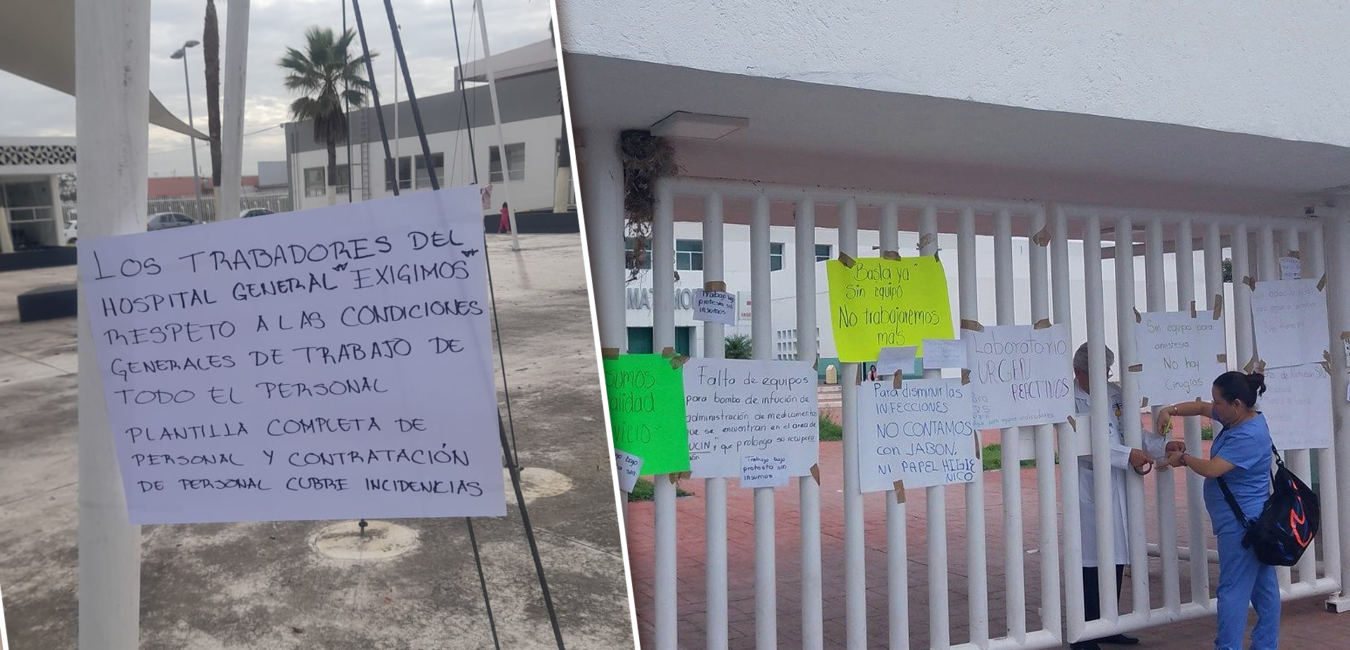 LOS TRABADORES DEL
HOSPITAL GENERAL "EXIGIMOS"
RESPETO A LAS CONDICIONES
GENERALES DE TRABAJO DE
TODO EL PERSONAL
PLANTILLA COMPLETA DE
PERSONAL Y CONTRATACIÓN
DE PERSONAL CUBRE INCIDENCIAS
Trabajo bajo
protesta sin
insumos
Basta ya
Sin equipo
No trabajaremos
más
Falta de equipos
para bomba de infución de
administración de medicamento
que se encuentran en el area de
UCIN, y que prolonga su recupera
Trabajo bajo
protesta sin
insumos
Para disminuir las
INFECCIONES
NO CONTAMOS
con JABON,
NI PAPEL HIGIE
NICO
Laboratorio
URGEN
REACTIVOS
Sin equipos para
anestesia
No hay
Cirugías